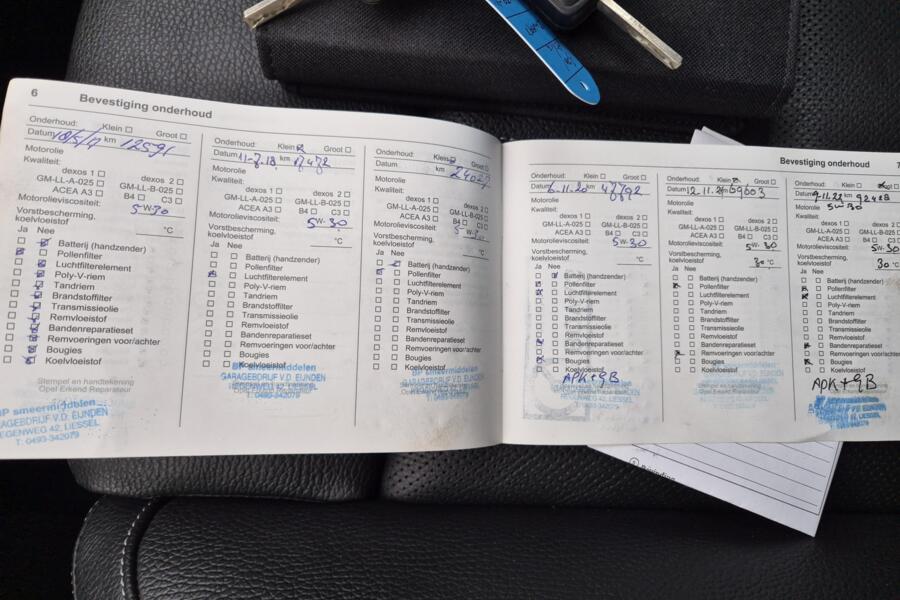 6 Bevestiging onderhoud
Onderhoud: Klein Groot
Datum km 12591
Motorolie
Kwaliteit:
dexos 1 dexos 2
GM-LL-A-025 GM-LL-B-025
ACEA A3 B4 C3
Motorolieviscositeit: 5-W-30
Vorstbescherming,
koelvloeistof °C
Ja Nee
Batterij (handzender)
Pollenfilter
Luchtfilterelement
Poly-V-riem
Tandriem
Brandstoffilter
Transmissieolie
Remvloeistof
Bandenreparatieset
Remvoeringen voor/achter
Bougies
Koelvloeistof
Stempel en handtekening
Opel Erkend Reparateur
BP smeermiddelen
GARAGEBDRIJF V.D. EIJNDEN
HEGENWEG 42, LIESSEL
T: 0493-342079
Onderhoud: Klein Groot
Datum 11-7.18 km
Motorolie
Kwaliteit:
dexos 1 dexos 2
GM-LL-A-025 GM-LL-B-025
ACEA A3 B4 C3
Motorolieviscositeit: 5W-30
Vorstbescherming,
koelvloeistof °C
Ja Nee
Batterij (handzender)
Pollenfilter
Luchtfilterelement
Poly-V-riem
Tandriem
Brandstoffilter
Transmissieolie
Remvloeistof
Bandenreparatieset
Remvoeringen voor/achter
Bougies
Koelvloeistof
BP smeermiddelen
GARAGEBDRIJF V.D. EIJNDEN
HEGENWEG 42, LIESSEL
T: 0493-342079
Onderhoud: Klein Groot
Datum km
Motorolie
Kwaliteit:
dexos 1 dexos 2
GM-LL-A-025 GM-LL-B-025
ACEA A3 B4 C3
Motorolieviscositeit: 5-W-
Vorstbescherming,
koelvloeistof °C
Ja Nee
Batterij (handzender)
Pollenfilter
Luchtfilterelement
Poly-V-riem
Tandriem
Brandstoffilter
Transmissieolie
Remvloeistof
Bandenreparatieset
Remvoeringen voor/achter
Bougies
Koelvloeistof
Bevestiging onderhoud 7
Onderhoud: Klein Groot
Datum 6.11.20 km
Motorolie
Kwaliteit:
dexos 1 dexos 2
GM-LL-A-025 GM-LL-B-025
ACEA A3 B4 C3
Motorolieviscositeit: 5W-30
Vorstbescherming,
koelvloeistof °C
Ja Nee
Batterij (handzender)
Pollenfilter
Luchtfilterelement
Poly-V-riem
Tandriem
Brandstoffilter
Transmissieolie
Remvloeistof
Bandenreparatieset
Remvoeringen voor/achter
Bougies
Koelvloeistof
APK+gB
Onderhoud: Klein Groot
Datum 12.11. km 69603
Motorolie
Kwaliteit:
dexos 1 dexos 2
GM-LL-A-025 GM-LL-B-025
ACEA A3 B4 C3
Motorolieviscositeit: 5W-30
Vorstbescherming,
koelvloeistof 30 °C
Ja Nee
Batterij (handzender)
Pollenfilter
Luchtfilterelement
Poly-V-riem
Tandriem
Brandstoffilter
Transmissieolie
Remvloeistof
Bandenreparatieset
Remvoeringen voor/achter
Bougies
Koelvloeistof
Stempel en handtekening
Opel Erkend Reparateur
Onderhoud: Klein
Datum 9.11.22 km 92428
Motorolie 5W-30
Kwaliteit:
dexos 1 dexos 2
GM-LL-A-025 GM-LL-B-025
ACEA A3 B4 C3
Motorolieviscositeit: 5W-30
Vorstbescherming,
koelvloeistof 30 °C
Ja Nee
Batterij (handzender)
Pollenfilter
Luchtfilterelement
Poly-V-riem
Tandriem
Brandstoffilter
Transmissieolie
Remvloeistof
Bandenreparatieset
Remvoeringen voor/achter
Bougies
Koelvloeistof
APK+gB